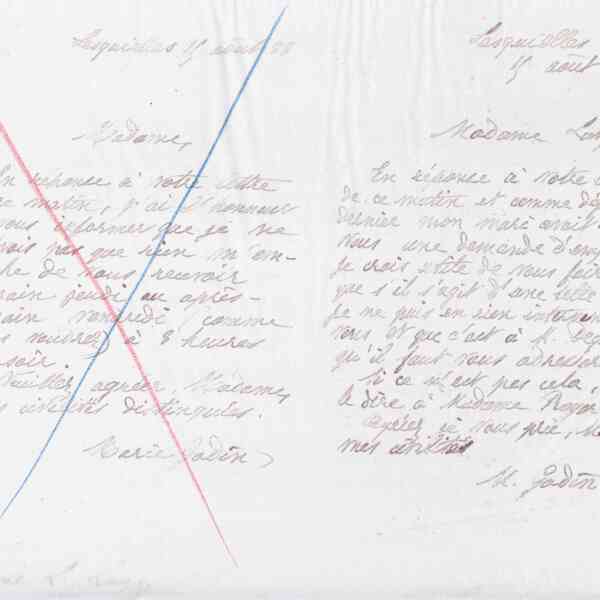 Lesquielles 15 août 88
Madame,
En réponse à votre lettre
ce matin, j'ai l'honneur
vous informer que je ne
vois pas que rien m'em-
che de vous recevoir
main jeudi ou après-
main vendredi (comme
s voudrez) à 8 heures
soir.
Veuillez agréer, Madame,
s civilités distinguées.
Marie Godin
Lesquielles
15 août
Madame
En réponse à votre
de ce matin et comme
dernier mon mari avait
vous une demande d'em
je crois utile de vous fair
que s'il s'agit d'une telle
je ne puis en rien interven
vous et que c'est à M.
qu'il faut vous adresser
Si ce n'est pas cela,
le dire à Madame Roger
Agréez je vous prie, M
mes civilités
M. Godin